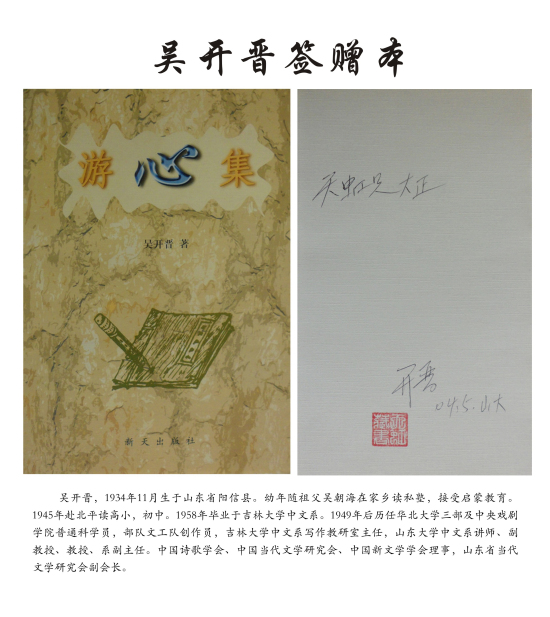 吴开晋签赠本
游心集
吴开晋 著
新天出版社
关虹兄大正
开晋
04.5.山大
吴开晋，1934年11月生于山东省阳信县。幼年随祖父吴朝海在家乡读私塾，接受启蒙教育。
1945年赴北平读高小，初中。1958年毕业于吉林大学中文系。1949年后历任华北大学三部及中央戏剧
学院普通科学员，部队文工队创作员，吉林大学中文系写作教研室主任，山东大学中文系讲师、副
教授、教授、系副主任。中国诗歌学会、中国当代文学研究会、中国新文学学会理事，山东省当代
文学研究会副会长。